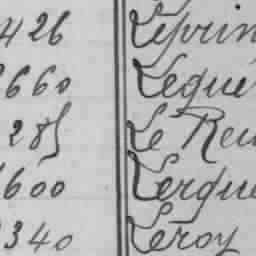 426 Leprin
660 Legué
285 Le Reu
600 Lergue
340 Leroy